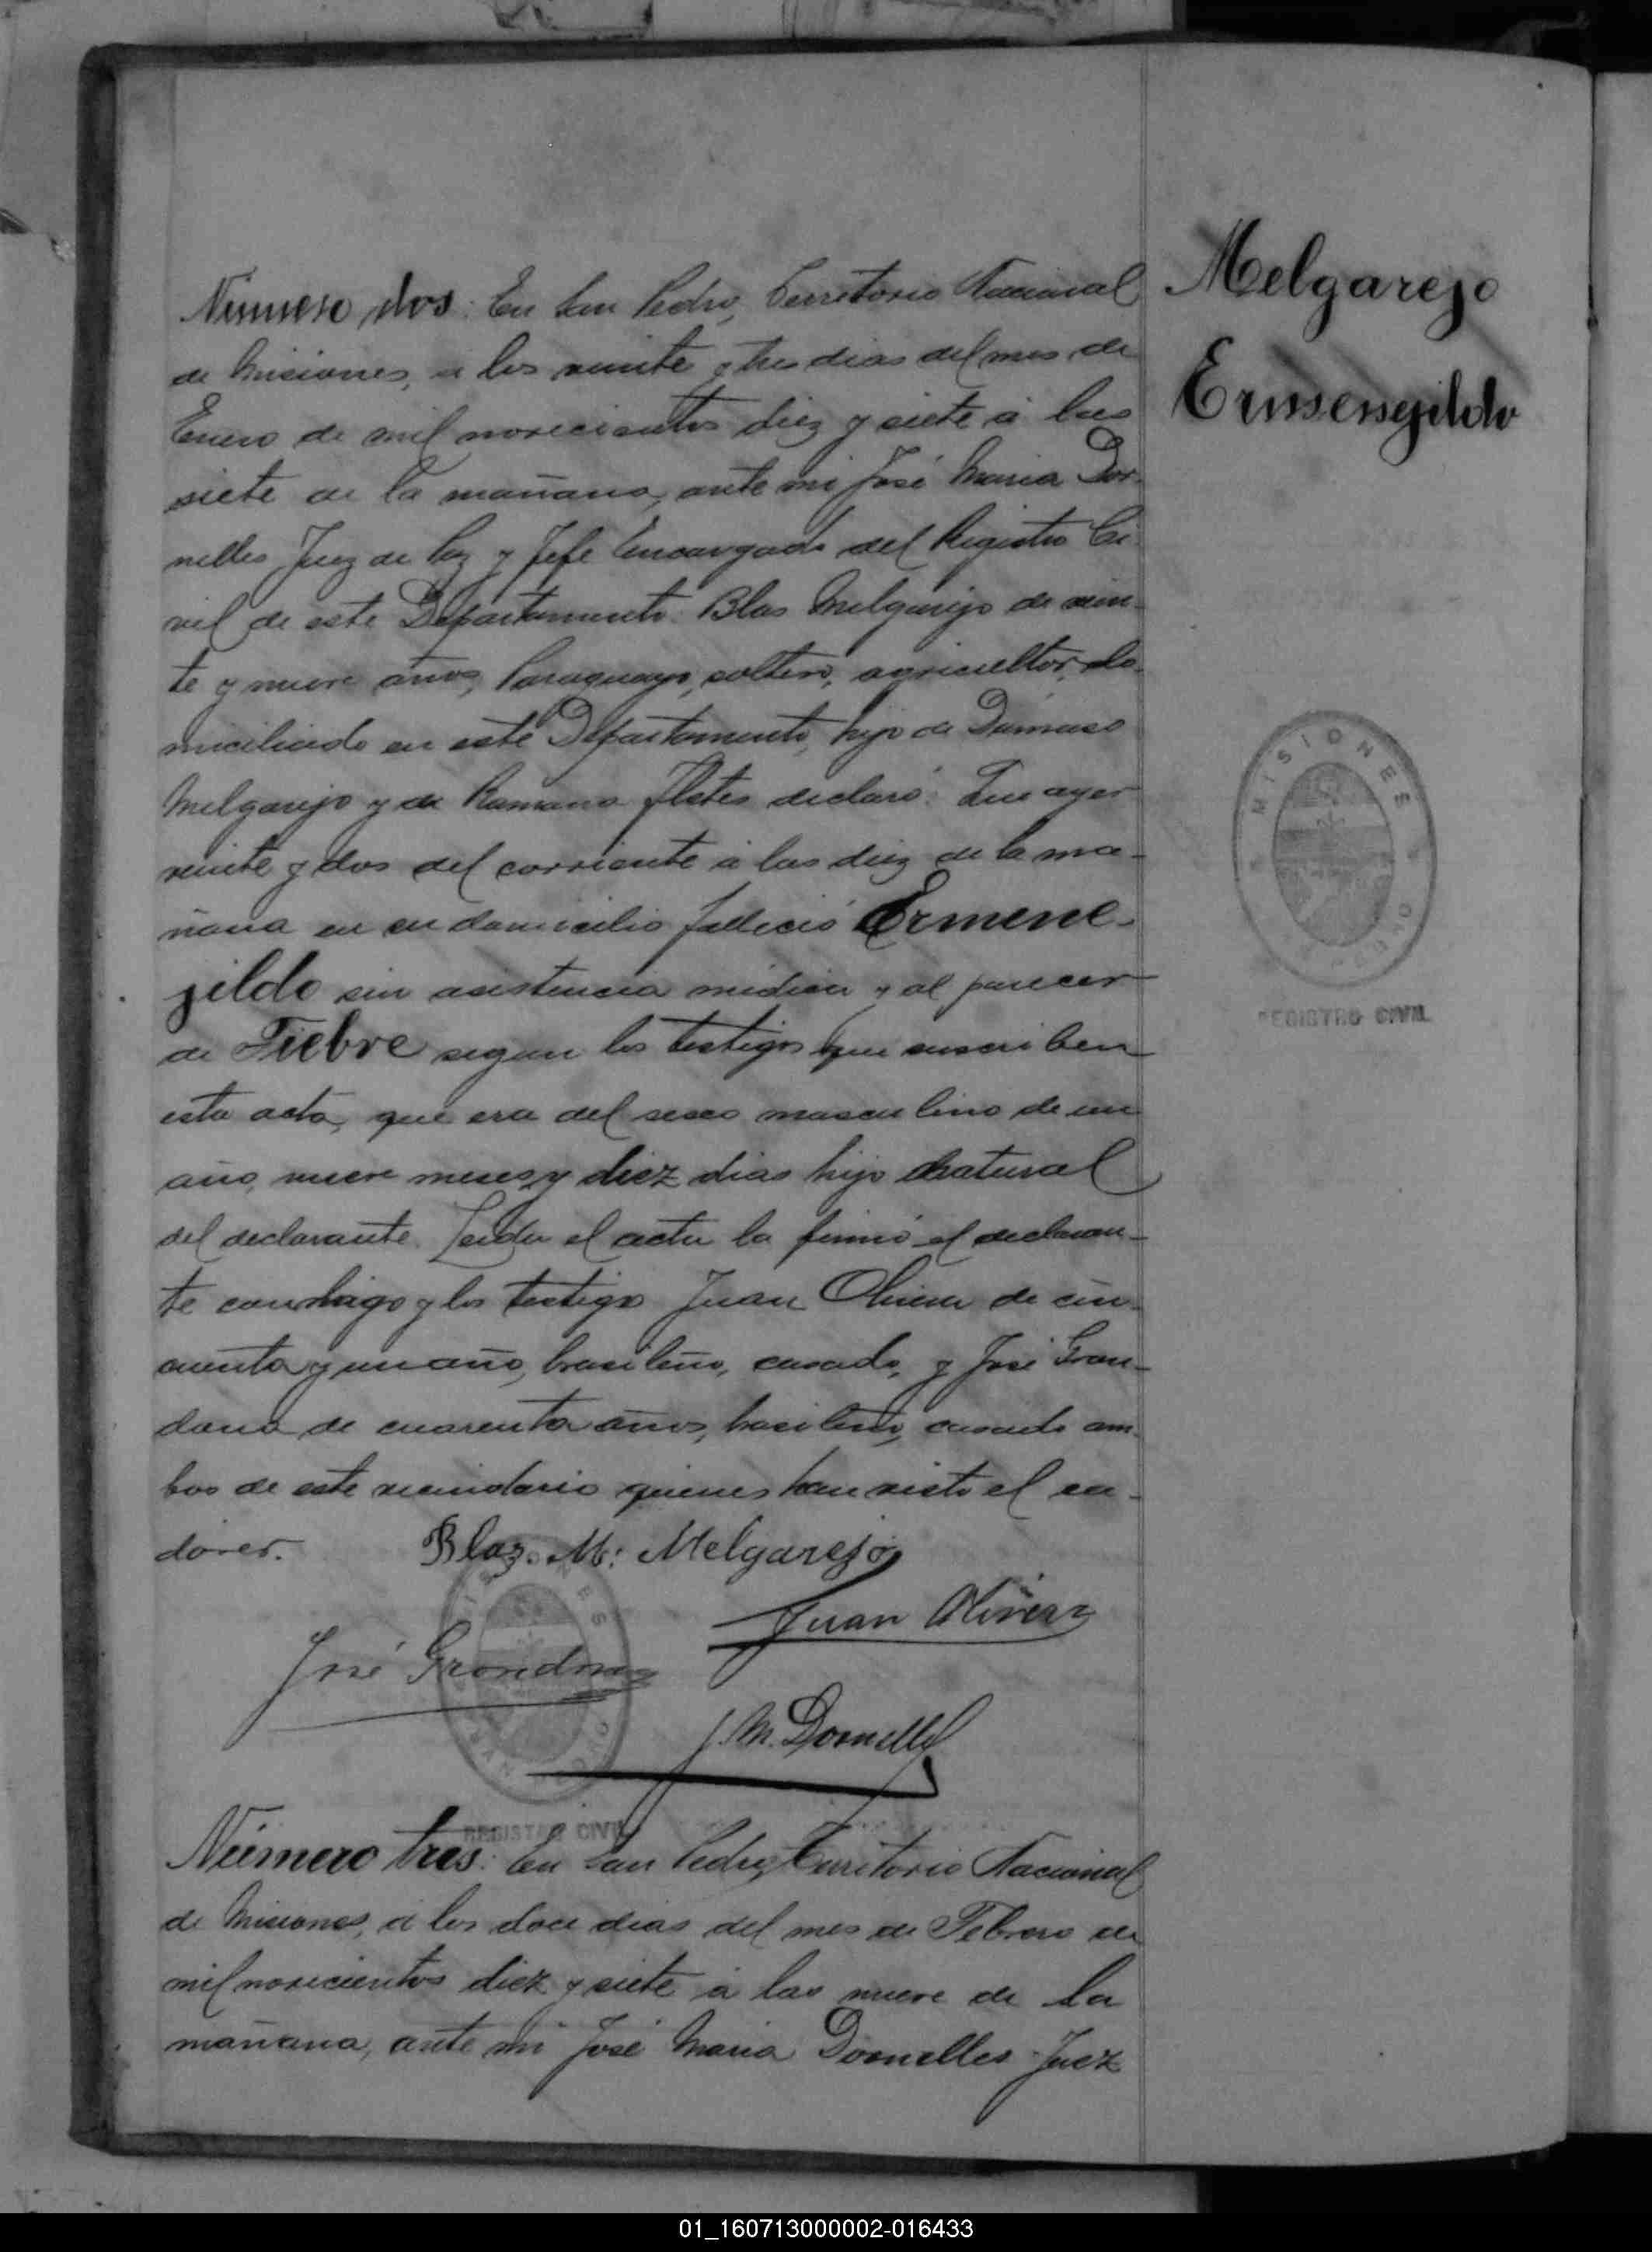 Número dos: En San Pedro, Territorio Nacional
de Misiones, á los veinte y tres dias del mes de
Enero de mil novecientos diez y siete á las
siete de la mañana, ante mi José Maria Dor-
nelles Juez de Paz y Jefe Encargado del Registro Ci-
vil de este Departamento: Blas Melgarejo de vein-
te y nueve años, Paraguayo, soltero, agricultor, do-
miciliado en este Departamento, hijo de Dámaso
Melgarejo y de Ramona Fletes declaró: Que ayer
veinte y dos del corriente á las diez de la ma-
ñana en su domicilio falleció Ermene-
jildo sin asistencia médica y al parecer
de Fiebre segun los testigos que suscriben
esta acta, que era del sexo masculino de un
año, nueve meses y diez dias hijo natural
del declarante. Leida el acta la firmó el declaran-
te conmigo y los testigos Juan Olivera de cin-
cuenta y un año, brasileño, casado, y José Gron-
dona de cuarenta años, brasileño, casado am-
bos de este vecindario quienes han visto el ca-
dáver. Blaz. M: Melgarejo
Juan Olivera
José Grondona
J. M. Dornelles
Número tres: En San Pedro, Territorio Nacional
de Misiones, á los doce dias del mes de Febrero de
mil novecientos diez y siete á las nueve de la
mañana, ante mi José Maria Dornelles Juez
Melgarejo
Ermenegildo
MISIONES
REGISTRO CIVIL
REGISTRO CIVIL
01_160713000002-016433